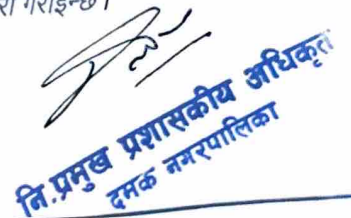 गराइन्छ।
नि.प्रमुख प्रशासकीय अधिकृत
दमक नगरपालिका